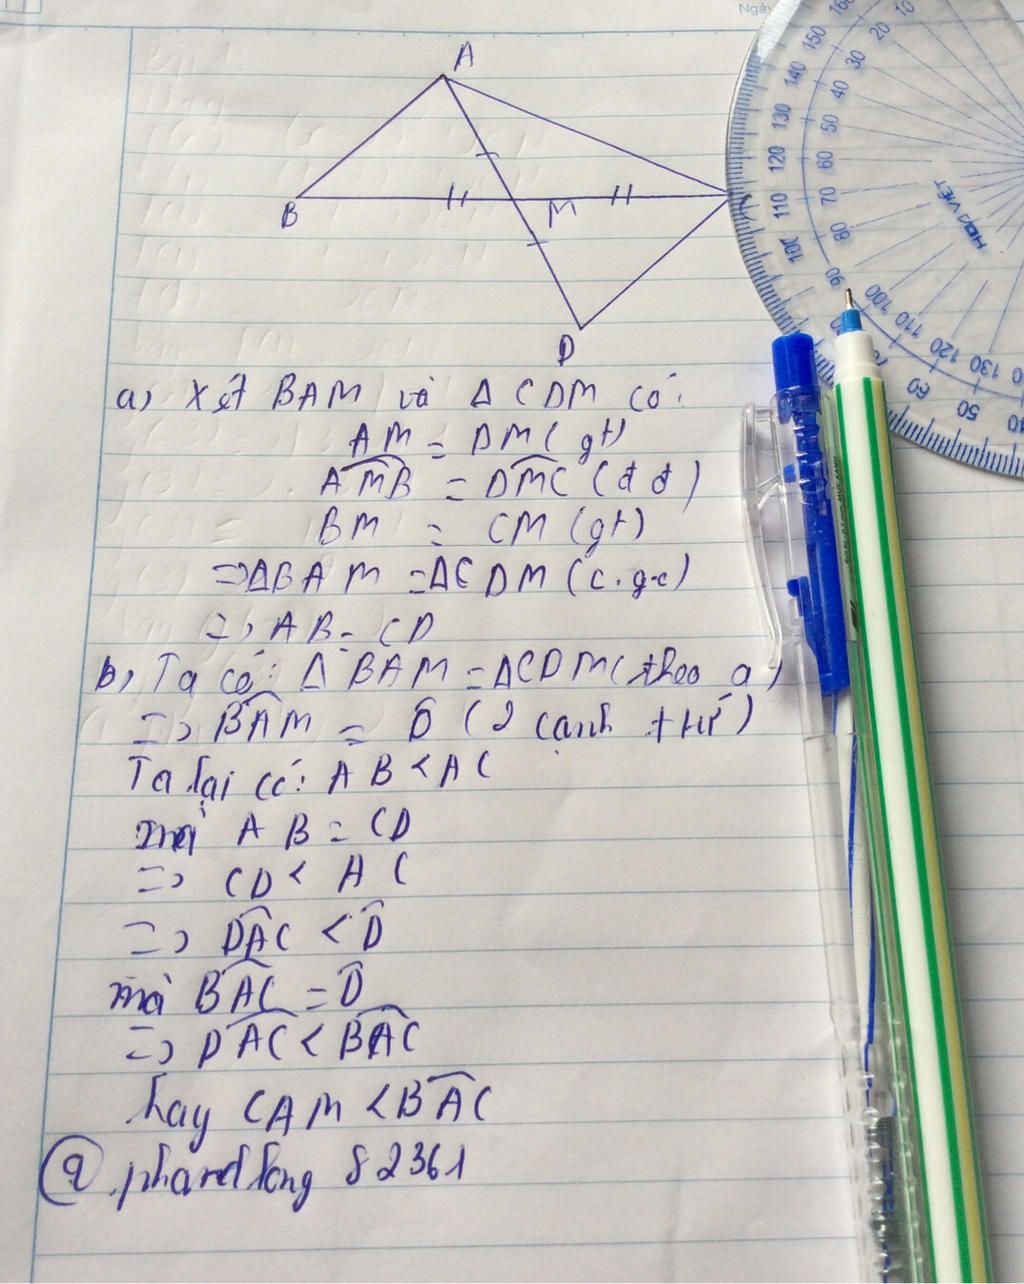 Ngày
A
B
M
D
a) Xét BAM và Δ CDM có:
AM = DM (gt)
AMB = DMC (đ đ)
BM = CM (gt)
=> ΔBAM = ΔCDM (c.g.c)
=> AB = CD
b, Ta có: Δ BAM = ΔCDM (theo a)
=> BAM = D (2 cạnh tứ)
Ta lại có: AB < AC
mà AB = CD
=> CD < AC
=> DAC < D
mà BAC = D
=> DAC < BAC
hay CAM < BAC
HOA VIỆT
160 150 140 130 120 110 100 90
10 20 30 40 50 60 70 80
100 110 120 130
60 50
82361